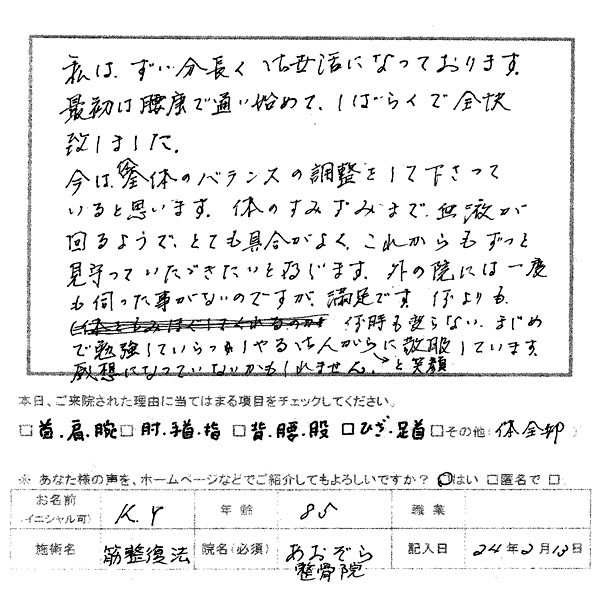 私は、ずい分長くお世話になっております。
最初は腰痛で通い始めて、しばらくで全快
致しました。
今は体全体のバランスの調整をして下さって
いると思います。体のすみずみまで、血液が
回るようで、とても具合がよく、これからもずっと
見守っていただきたいと存じます。外の院には一度
も伺った事がないのですが、満足です。何よりも、
何時も変らない、まじめ
で勉強していらっしゃるお人がらに敬服しています。
と笑顔
感想になっていないかもしれません。
本日、ご来院された理由に当てはまる項目をチェックしてください。
□首・肩・腕□肘・手首・指 □背・腰・股 □ひざ・足首□その他(体全部 )
※ あなた様の声を、ホームページなどでご紹介してもよろしいですか? □はい □匿名で □
お名前(イニシャル可) K.Y 年齢 85 職業
施術名 筋整復法 院名(必須) あおぞら整骨院 記入日 24年2月13日